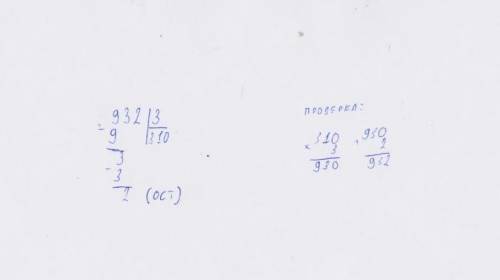 932 | 3
- 9 | 310
3
- 3
2 (ост)
проверка:
310
× 3
930
930
+ 2
932